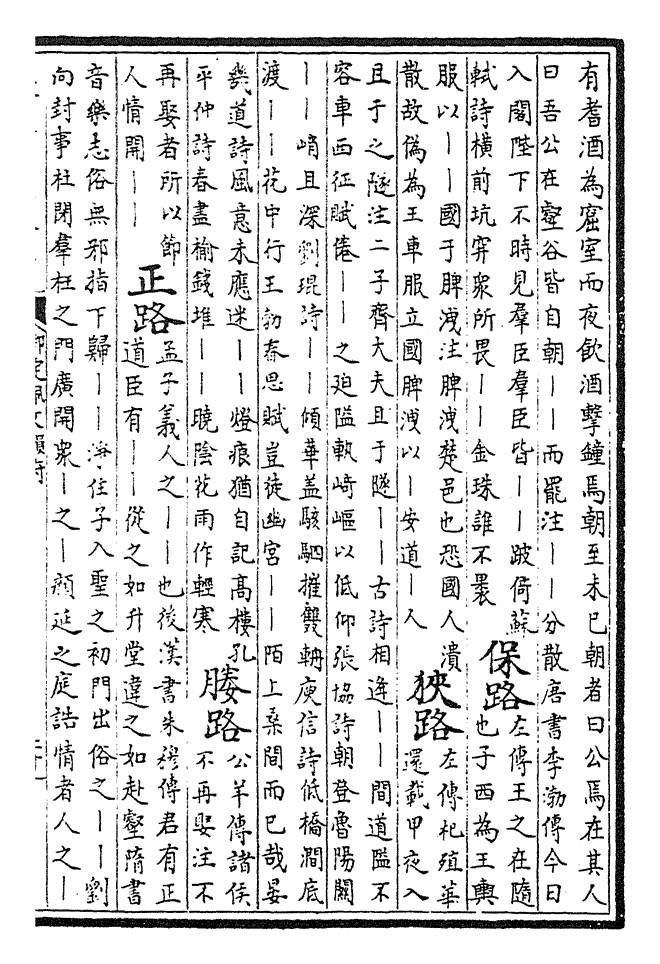 有耆酒為窟室而夜飲酒擊鐘焉朝至未已朝者曰公焉在其人
曰吾公在壑谷皆自朝丨丨而罷注丨丨分散唐書李渤傳今日
入閣陛下不時見羣臣羣臣皆丨丨跛倚蘇
軾詩橫前坑穽衆所畏丨丨金珠誰不裹
保路
左傳王之在隨
也子西為王輿
服以丨丨國于脾洩注脾洩楚邑也恐國人潰
散故偽為王車服立國脾洩以丨安道丨人
狹路
左傳杞殖華
還載甲夜入
且于之隧注二子齊大夫且于隧丨丨古詩相逢丨丨間道隘不
容車西征賦倦丨丨之廹隘軌﨑嶇以低仰張協詩朝登魯陽關
丨丨峭且深劉琨詩丨丨傾華盖駭駟摧雙輈庾信詩低橋澗底
渡丨丨花中行王勃春思賦豈徒幽宮丨丨陌上桑間而已哉晏
幾道詩風意未應迷丨丨燈痕猶自記高樓孔
平仲詩春盡榆錢堆丨丨曉陰花雨作輕寒
媵路
公羊傳諸侯
不再娶注不
再娶者所以節
人情開丨丨
正路
孟子義人之丨丨也後漢書朱穆傳君有正
道臣有丨丨從之如升堂違之如赴壑隋書
音樂志俗無邪指下歸丨丨淨住子入聖之初門出俗之丨丨劉
向封事杜閉羣枉之門廣開衆丨之丨顔延之庭誥情者人之丨